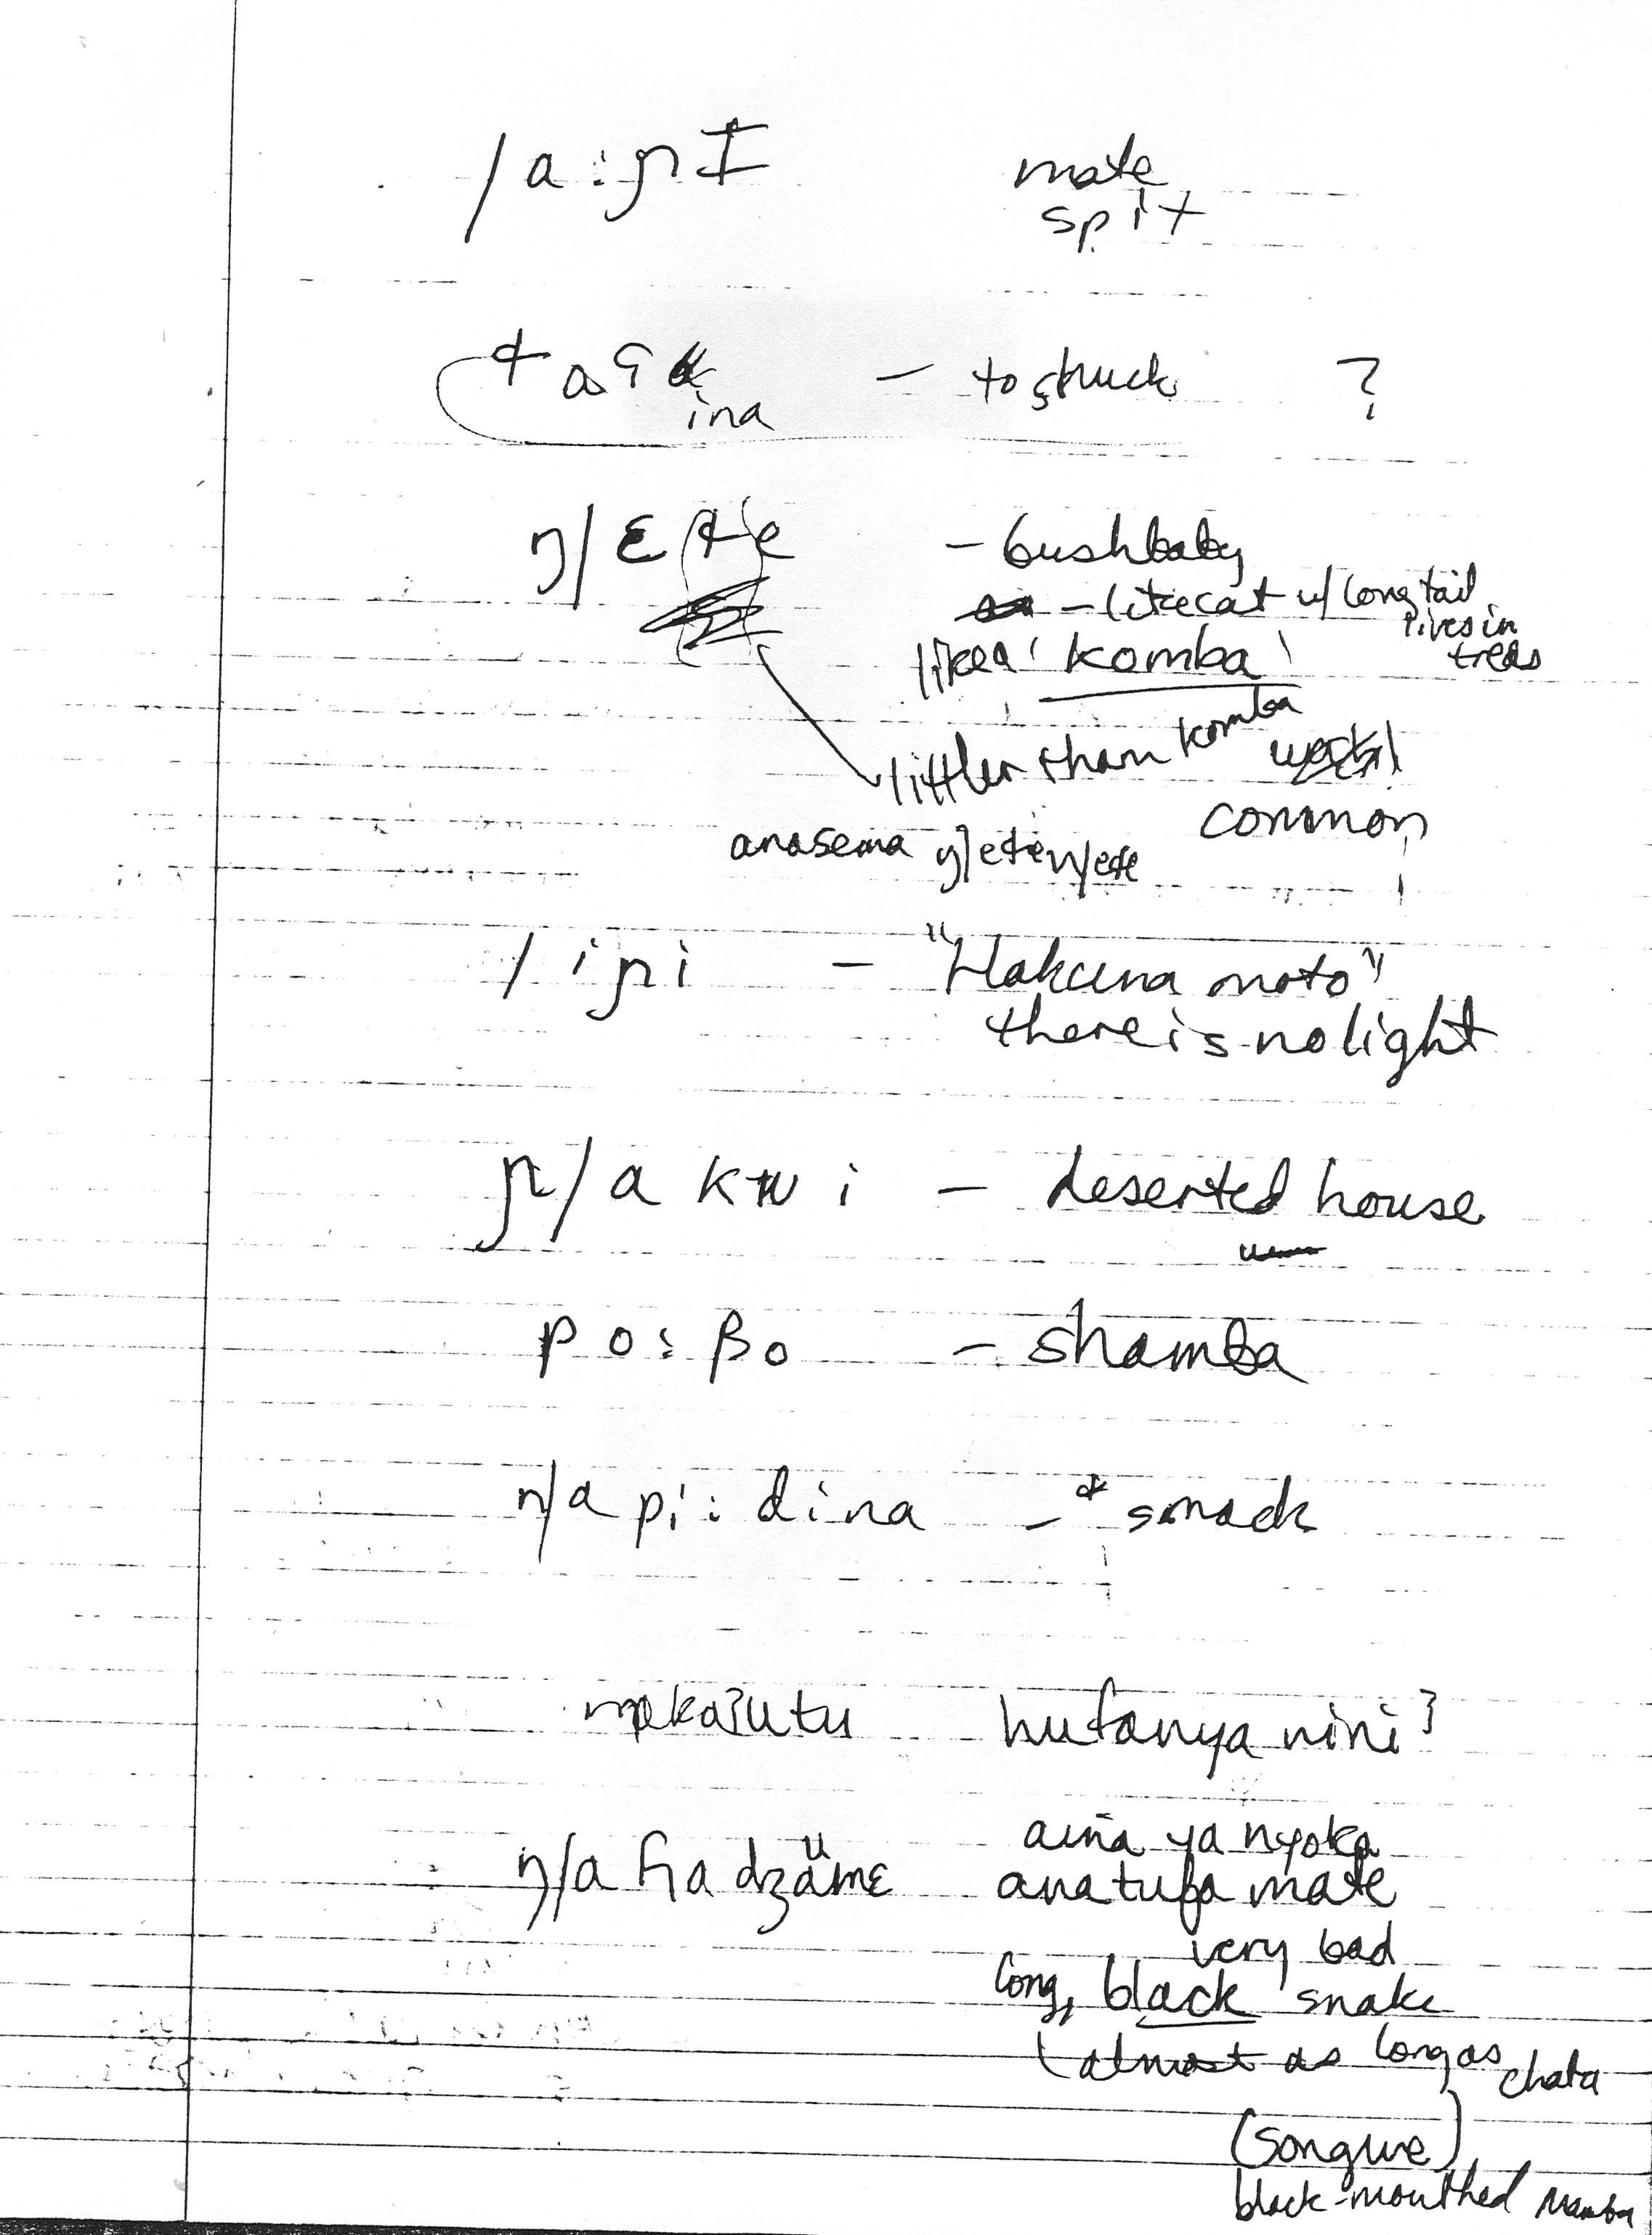 /a:ɲɪ mate
spit
ina – to struck ?
ŋ/ɛte – bushbaby
– like cat w/ long tail
lives in
trees
like a 'komba'
littler than komba
common
anasema
/iɲi – "Hakuna moto"
there is no light
ɲ/akwi – deserted house
po:βo – shamba
n/api:dina – * smack
kufanya nini?
aina ya nyoka
anatufa mate
very bad
long, black snake
(almost as long as chatu
(Songwe)
black-mouthed mamba